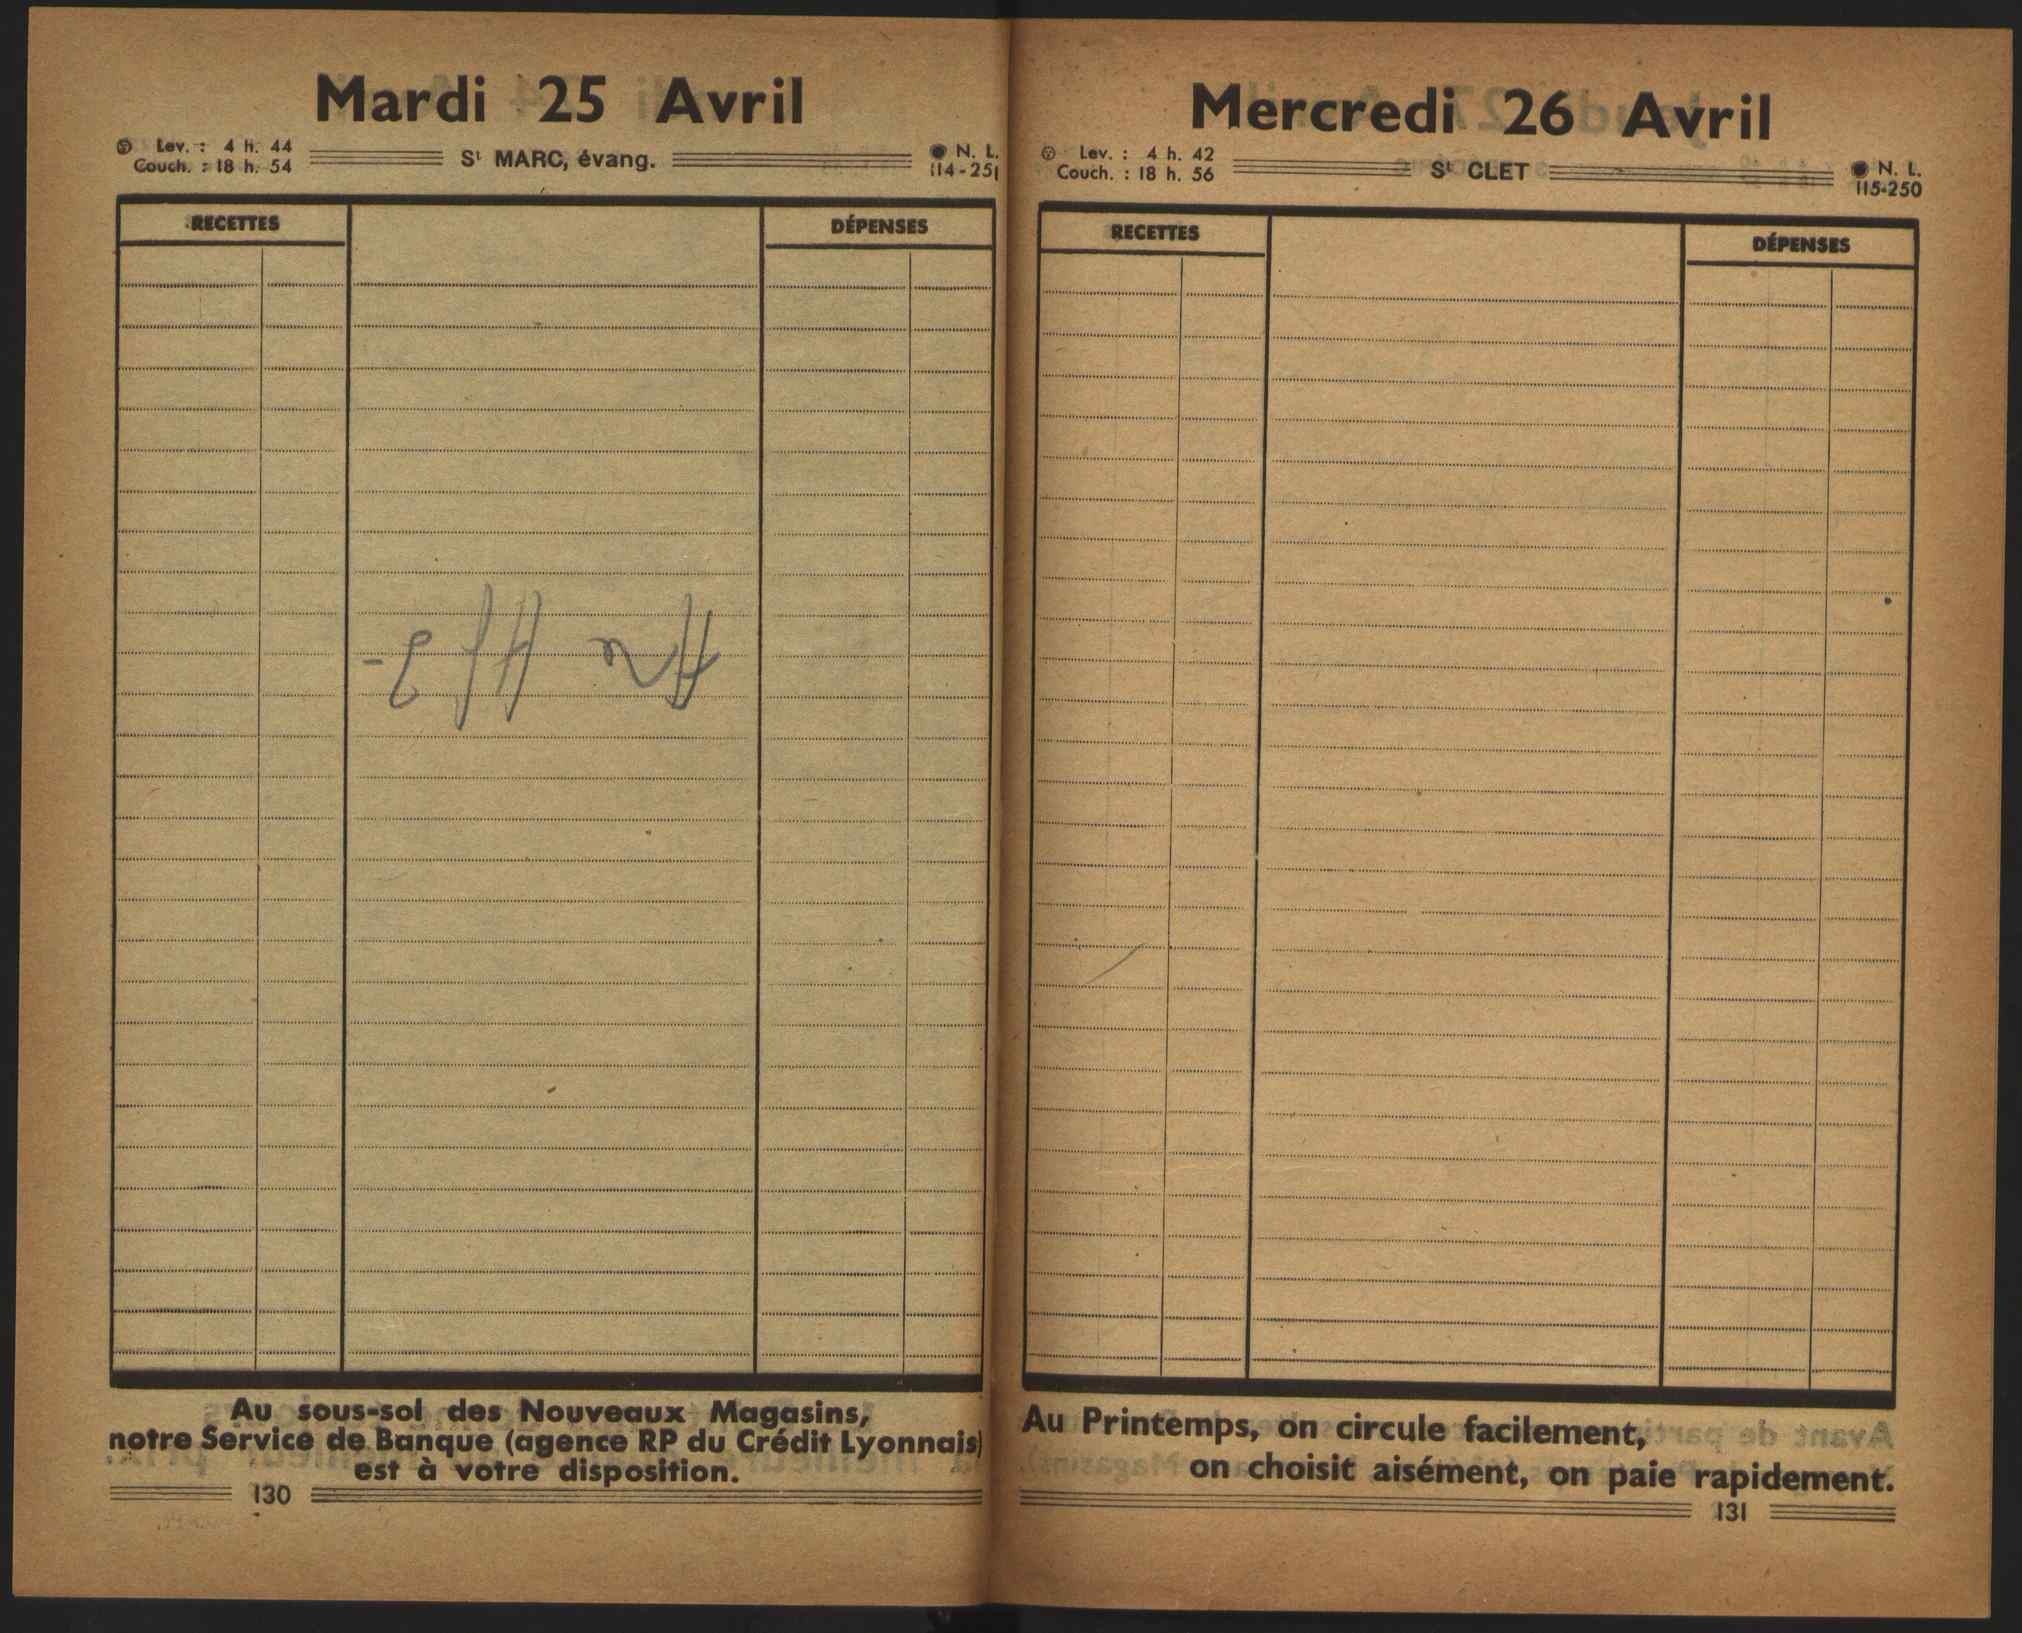 Mardi 25 Avril
Lev. : 4 h. 44
Couch. : 18 h. 54
St MARC, évang.
N. L.
114-251
RECETTES
DÉPENSES
Au sous-sol des Nouveaux Magasins,
notre Service de Banque (agence RP du Crédit Lyonnais)
est à votre disposition.
130
Mercredi 26 Avril
Lev. : 4 h. 42
Couch. : 18 h. 56
St CLET
N. L.
115-250
RECETTES
DÉPENSES
Au Printemps, on circule facilement,
on choisit aisément, on paie rapidement.
131